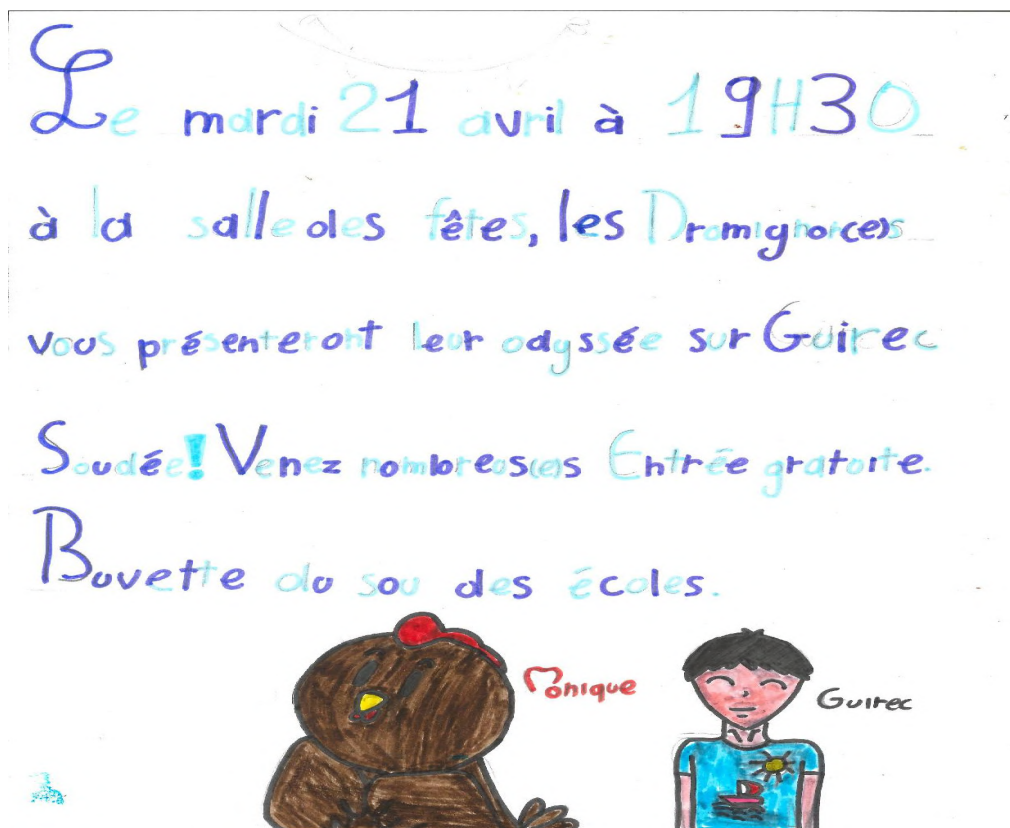 Le mardi 21 avril à 19H30
à la salle des fêtes, les Dromignoi(e)s
vous présenteront leur odyssée sur Guirec
Soudée! Venez nombreus(e)s Entrée gratuite.
Buvette du sou des écoles.
Monique
Guirec